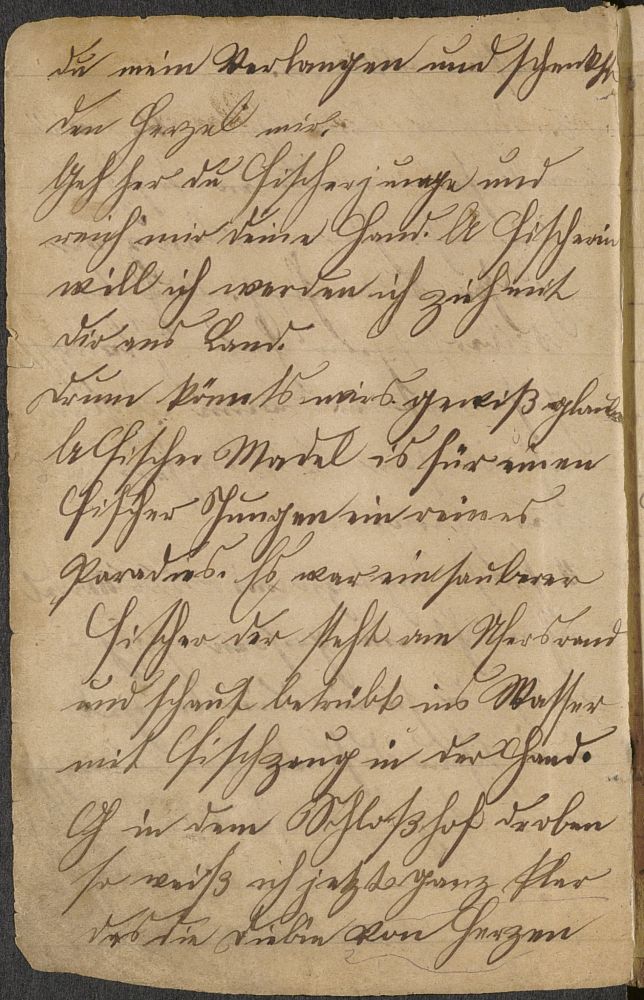 du mein Verlangen und schenkst
den Herzel mir.
Geh her du Fischerjunge und
reich mir deine Hand. A Fischerin
will ich werden ich zieh mit
dir ans Land.
Drum könnts mirs gewiß glaube
A Fischer Madel is für einen
Fischer Jungen ein reines
Paradies. Es war ein sauberer
Fischer der steht am Ufersrand
und schaut betrübt ins Wasser
mit Fischzeug in der Hand.
in dem Schloßhof droben
so weiß ich jetzt ganz klar
das die Diebin von Herzen